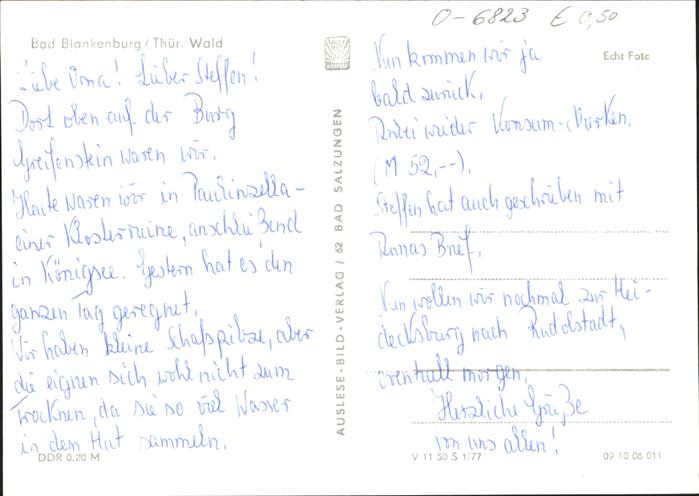 O-6823 € 0,50
Bad Blankenburg / Thür. Wald
Echt Foto
Liebe Oma! Lieber Steffen!
Dort oben auf der Burg
Greifenstein waren wir.
Heute waren wir in Paulinzella -
einer Klosterruine, anschließend
in Königsee. Gestern hat es den
ganzen Tag geregnet.
Wir haben kleine Schafspilze, aber
die eignen sich wohl nicht zum
Trocknen, da sie so viel Wasser
in dem Hut sammeln.
DDR 0,20 M
AUSLESE-BILD-VERLAG / 62 BAD SALZUNGEN
Nun kommen wir ja
bald zurück.
Anbei wieder Konsum-Marken.
(M 52,--).
Steffen hat auch geschrieben mit
Annas Brief.
Nun wollen wir nochmal zur Hei-
decksburg nach Rudolstadt,
eventuell morgen.
Herzliche Grüße
von uns allen!
V 11 50 S 1/77
09 10 06 011